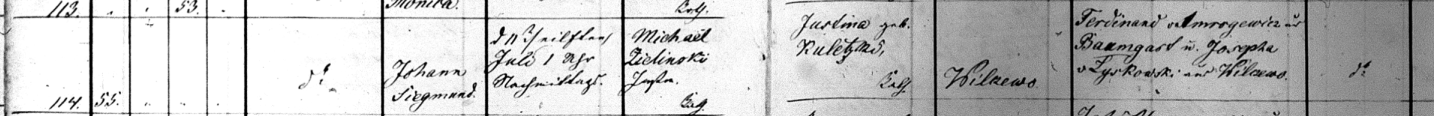 113. " " 53.
Monica.
Kath.
114. 55. " " "
do
Johann
Siegmund.
den Zwölften
Juli 1 Uhr
Nachmittags.
Michael
Zielinski
Instm.
Kath.
Justina geb.
Kuletzka,
Kath.
Wilczewo.
Ferdinand v Amrogewicz aus
Baumgart u. Josepha
v Zyskowski aus Wilczewo.
do